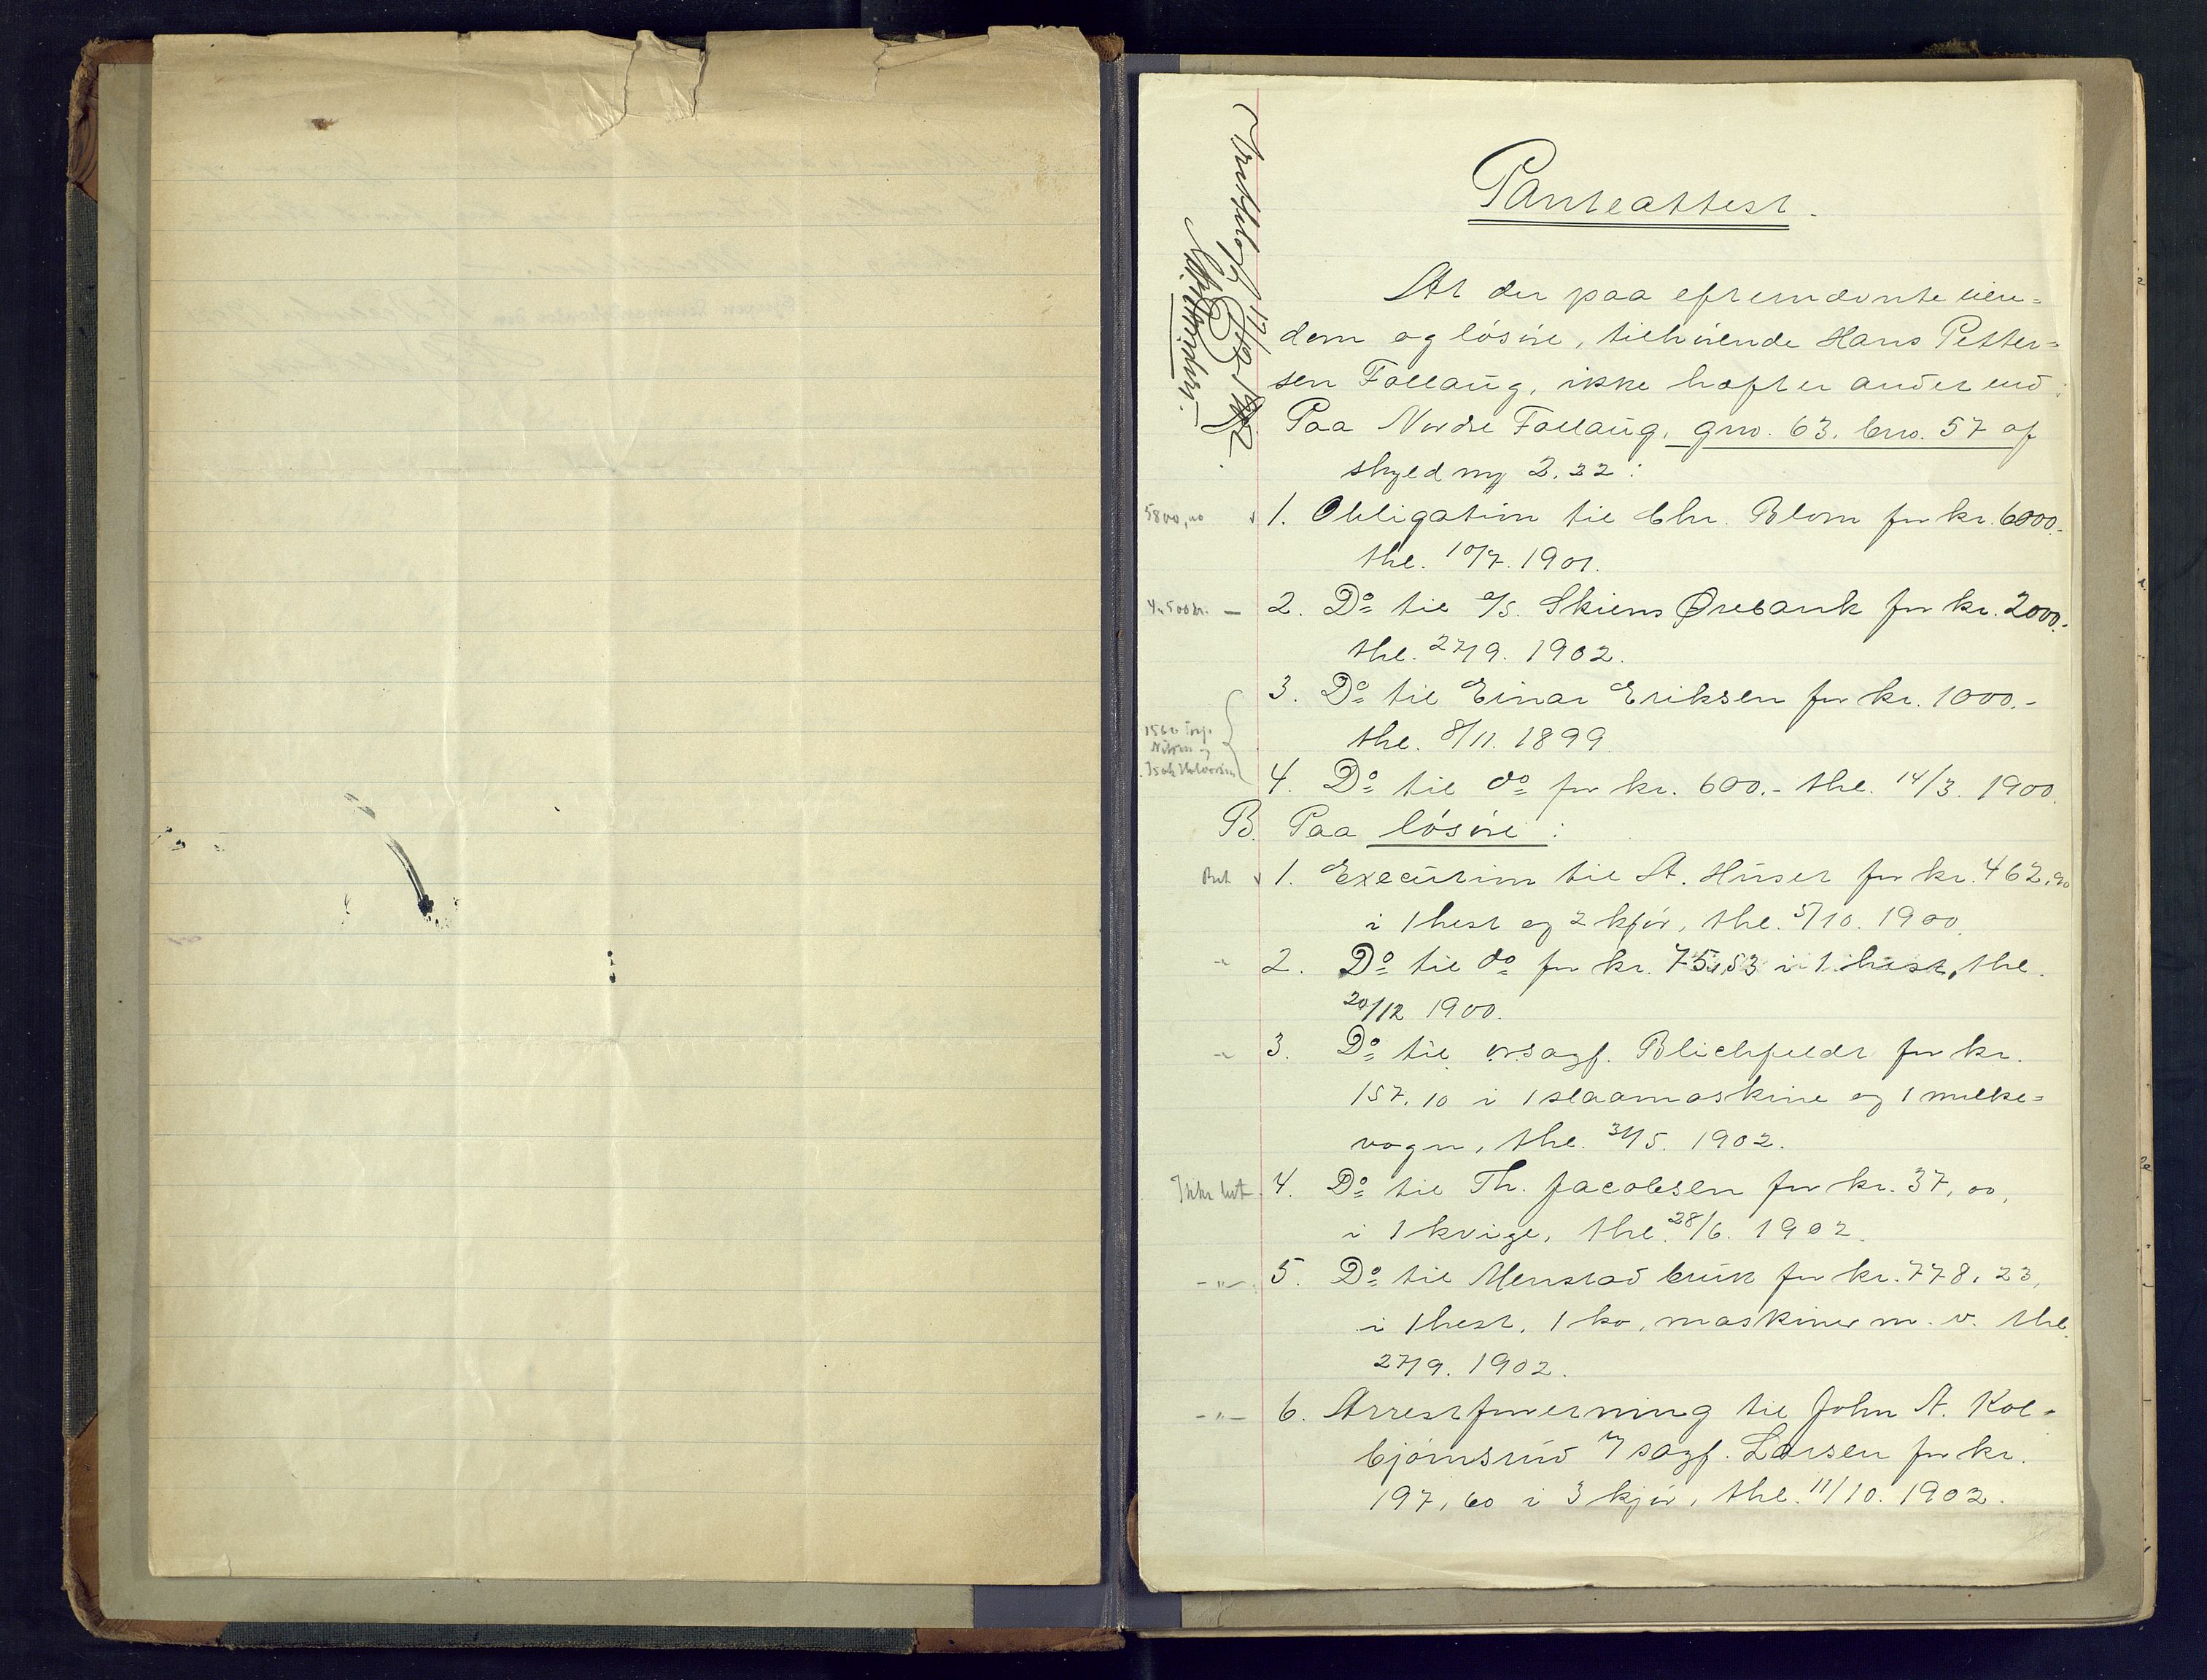 Panteattest.
At der paa efternævnte eien=
dom og løsøre, tilhørende Hans Petter=
sen Follaug, ikke hæfter andet end:
Paa Nordre Follaug, gno. 63. bno. 57 af
skyld my 2.22:
5800,00 1. Obligation til Chr. Blom for kr. 6000.-
thl. 10/7. 1901.
2. Do til a/s. Skiens Ørebank for kr. 2000.-
thl. 27/9. 1902.
3. Do til Einar Eriksen for kr. 1000.-
thl. 8/11. 1899
4. Do til do for kr. 600.- thl. 14/3. 1900.
B. Paa løsøre:
Bet 1. Execution til A. Huset for kr. 462,90
i 1 hest og 2 kjør, thl. 5/10. 1900.
2. Do til do for kr. 75,53 i 1 hest, thl.
20/12 1900.
3. Do til o.r.sagf. Blichfeldt for kr.
157.10 i 1 slaamaskine og 1 melke=
vogn, thl. 31/5. 1902.
Ikke bet. 4. Do til Th. Jacobsen for kr. 37,00,
i 1 kvige, thl. 28/6. 1902.
-"- 5. Do til Menstad bruk for kr. 778,23,
i 1 hest, 1 ko, maskiner m. v. thl.
27/9. 1902.
-"- 6. Arrestforretning til John A. Kol=
bjørnsrud v/ sagf. Larsen for kr.
197,60 i 3 kjør, thl. 11/10. 1902.